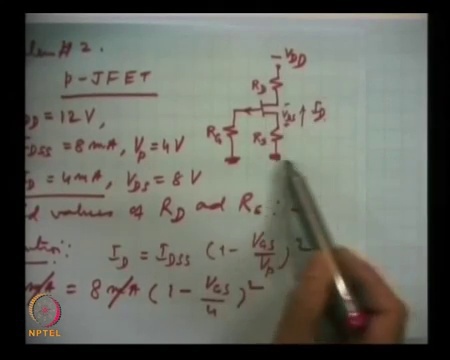 blem # 2.
p-JFET
DD = 12V
IDSS = 8mA, Vp = 4V
ID = 4mA, VDS = 8 V
d values of RD and RS :-
ution:- ID = IDSS (1 - VGS/Vp)²
mA = 8 mA (1 - VGS/4)²
-VDD
RD
RG
VDS
ID
RS
NPTEL